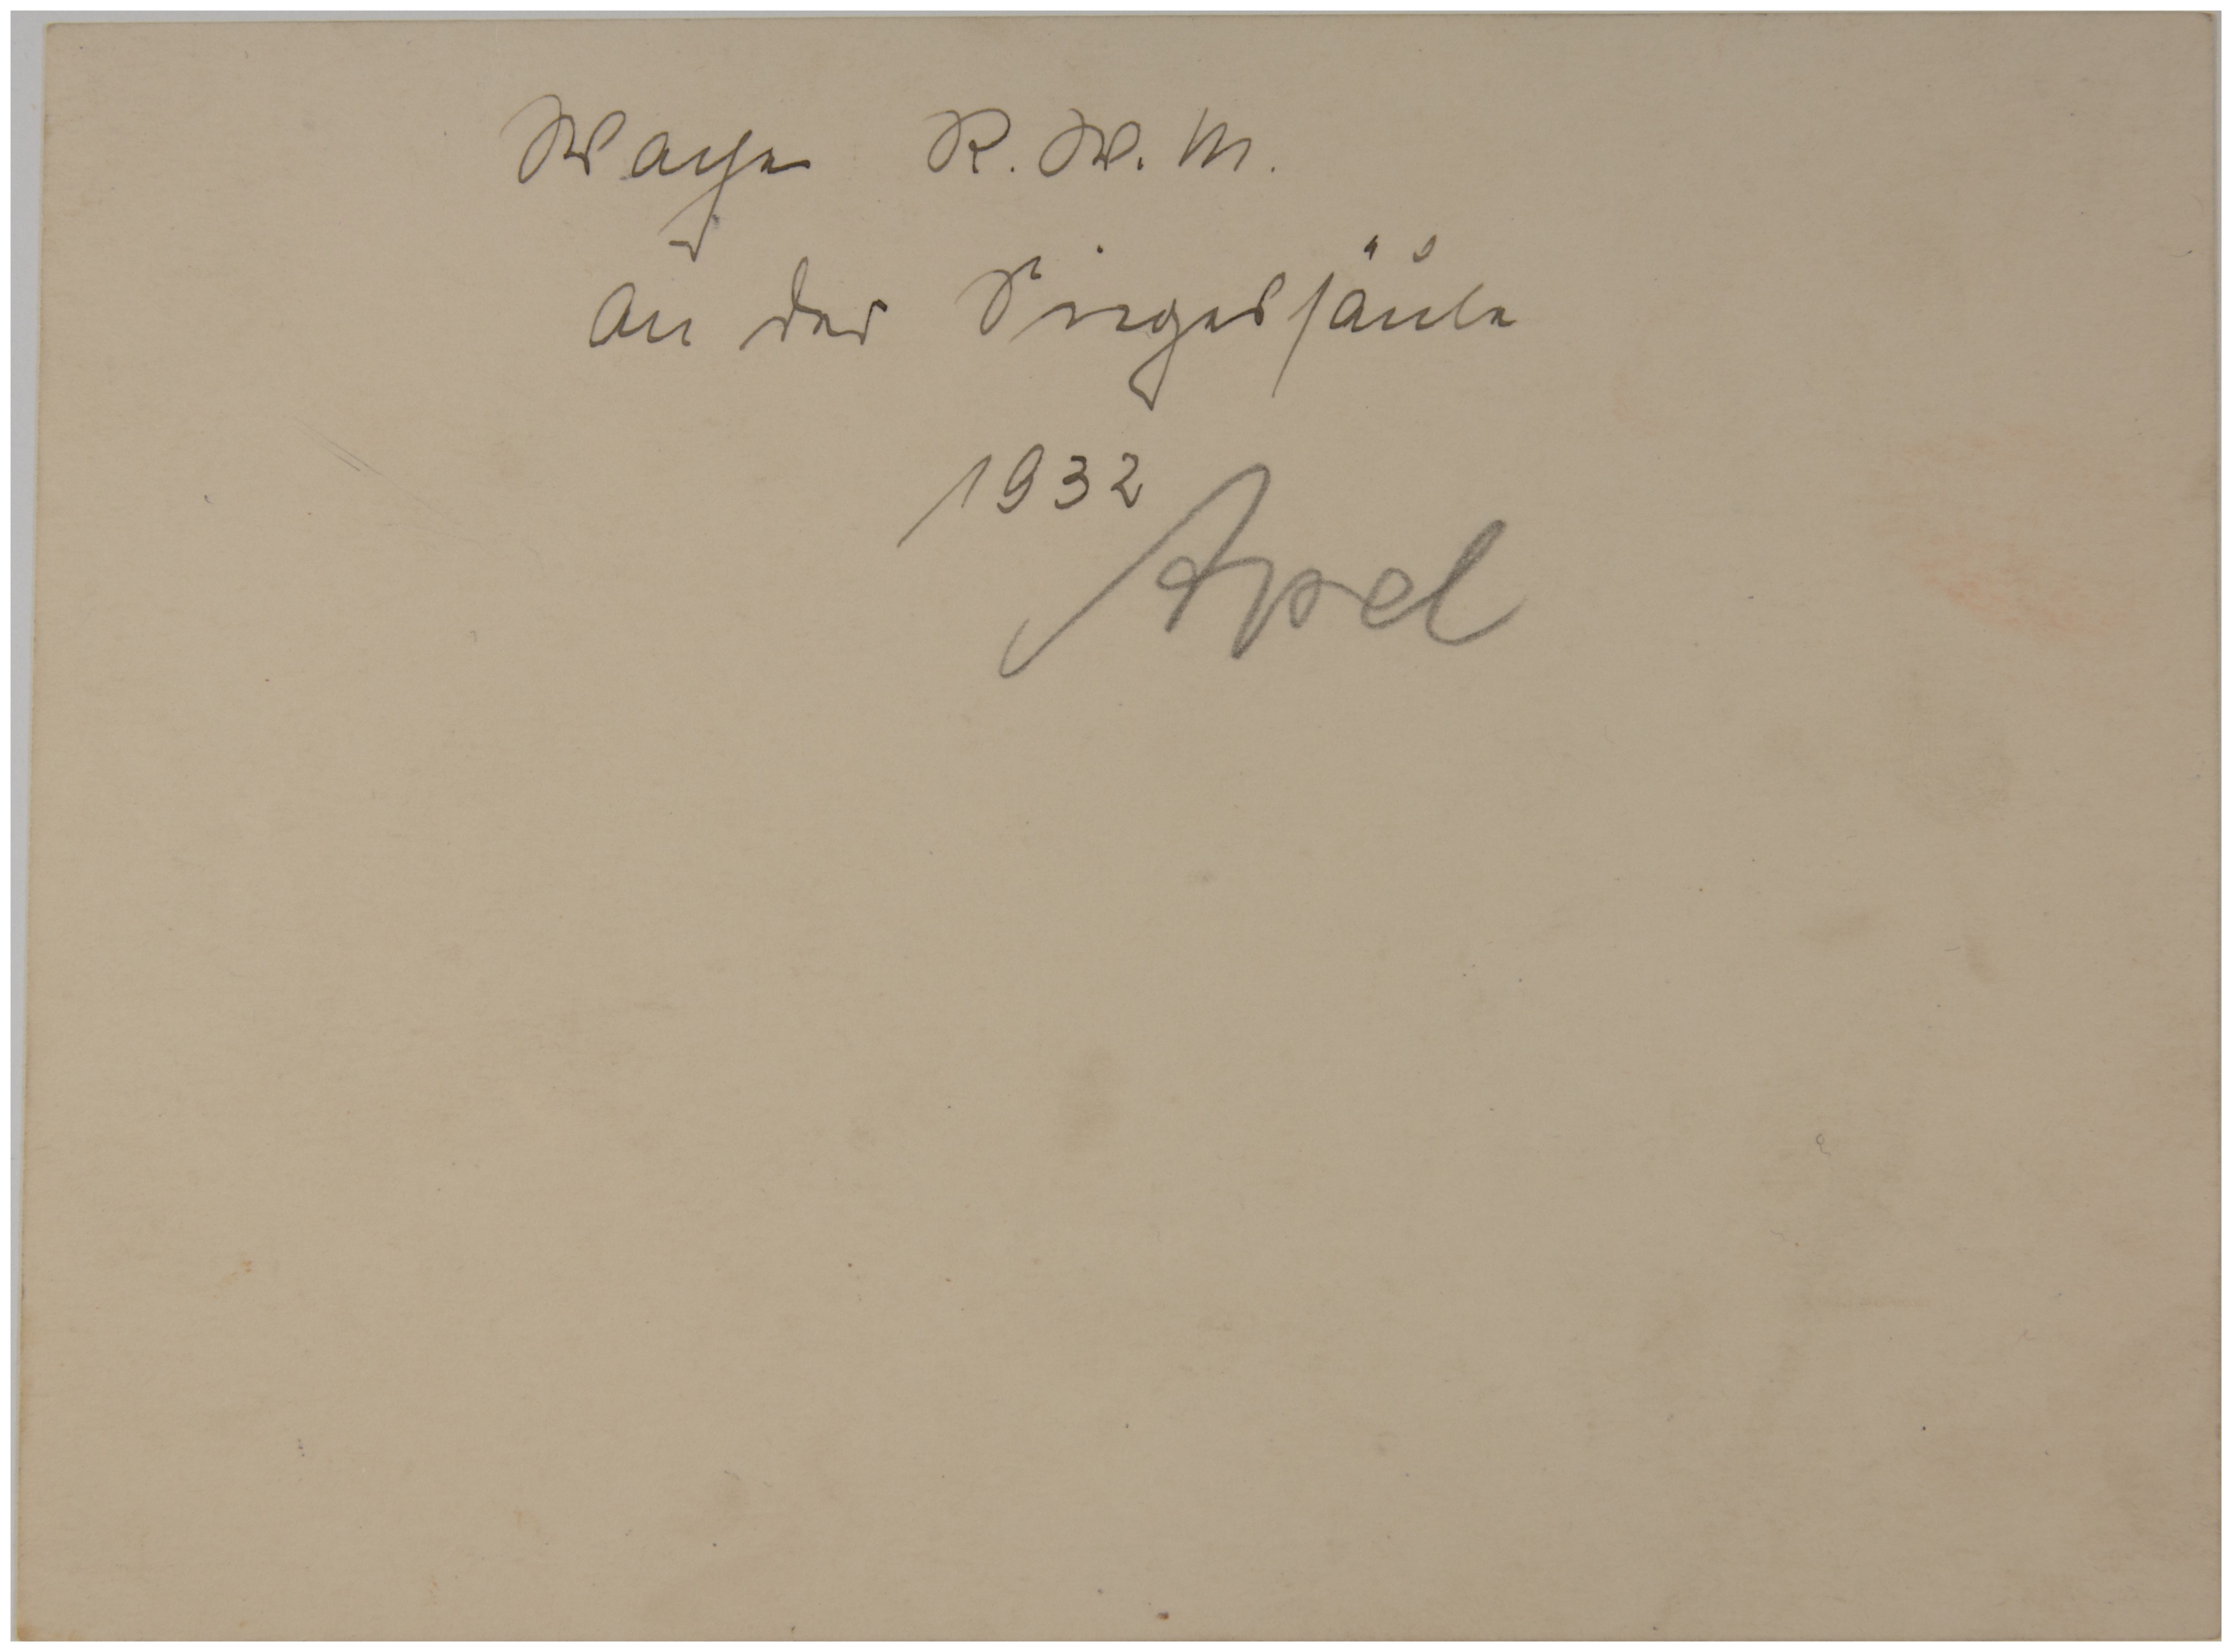 Wache R.W.M.
an der Siegessäule
1932
Apel